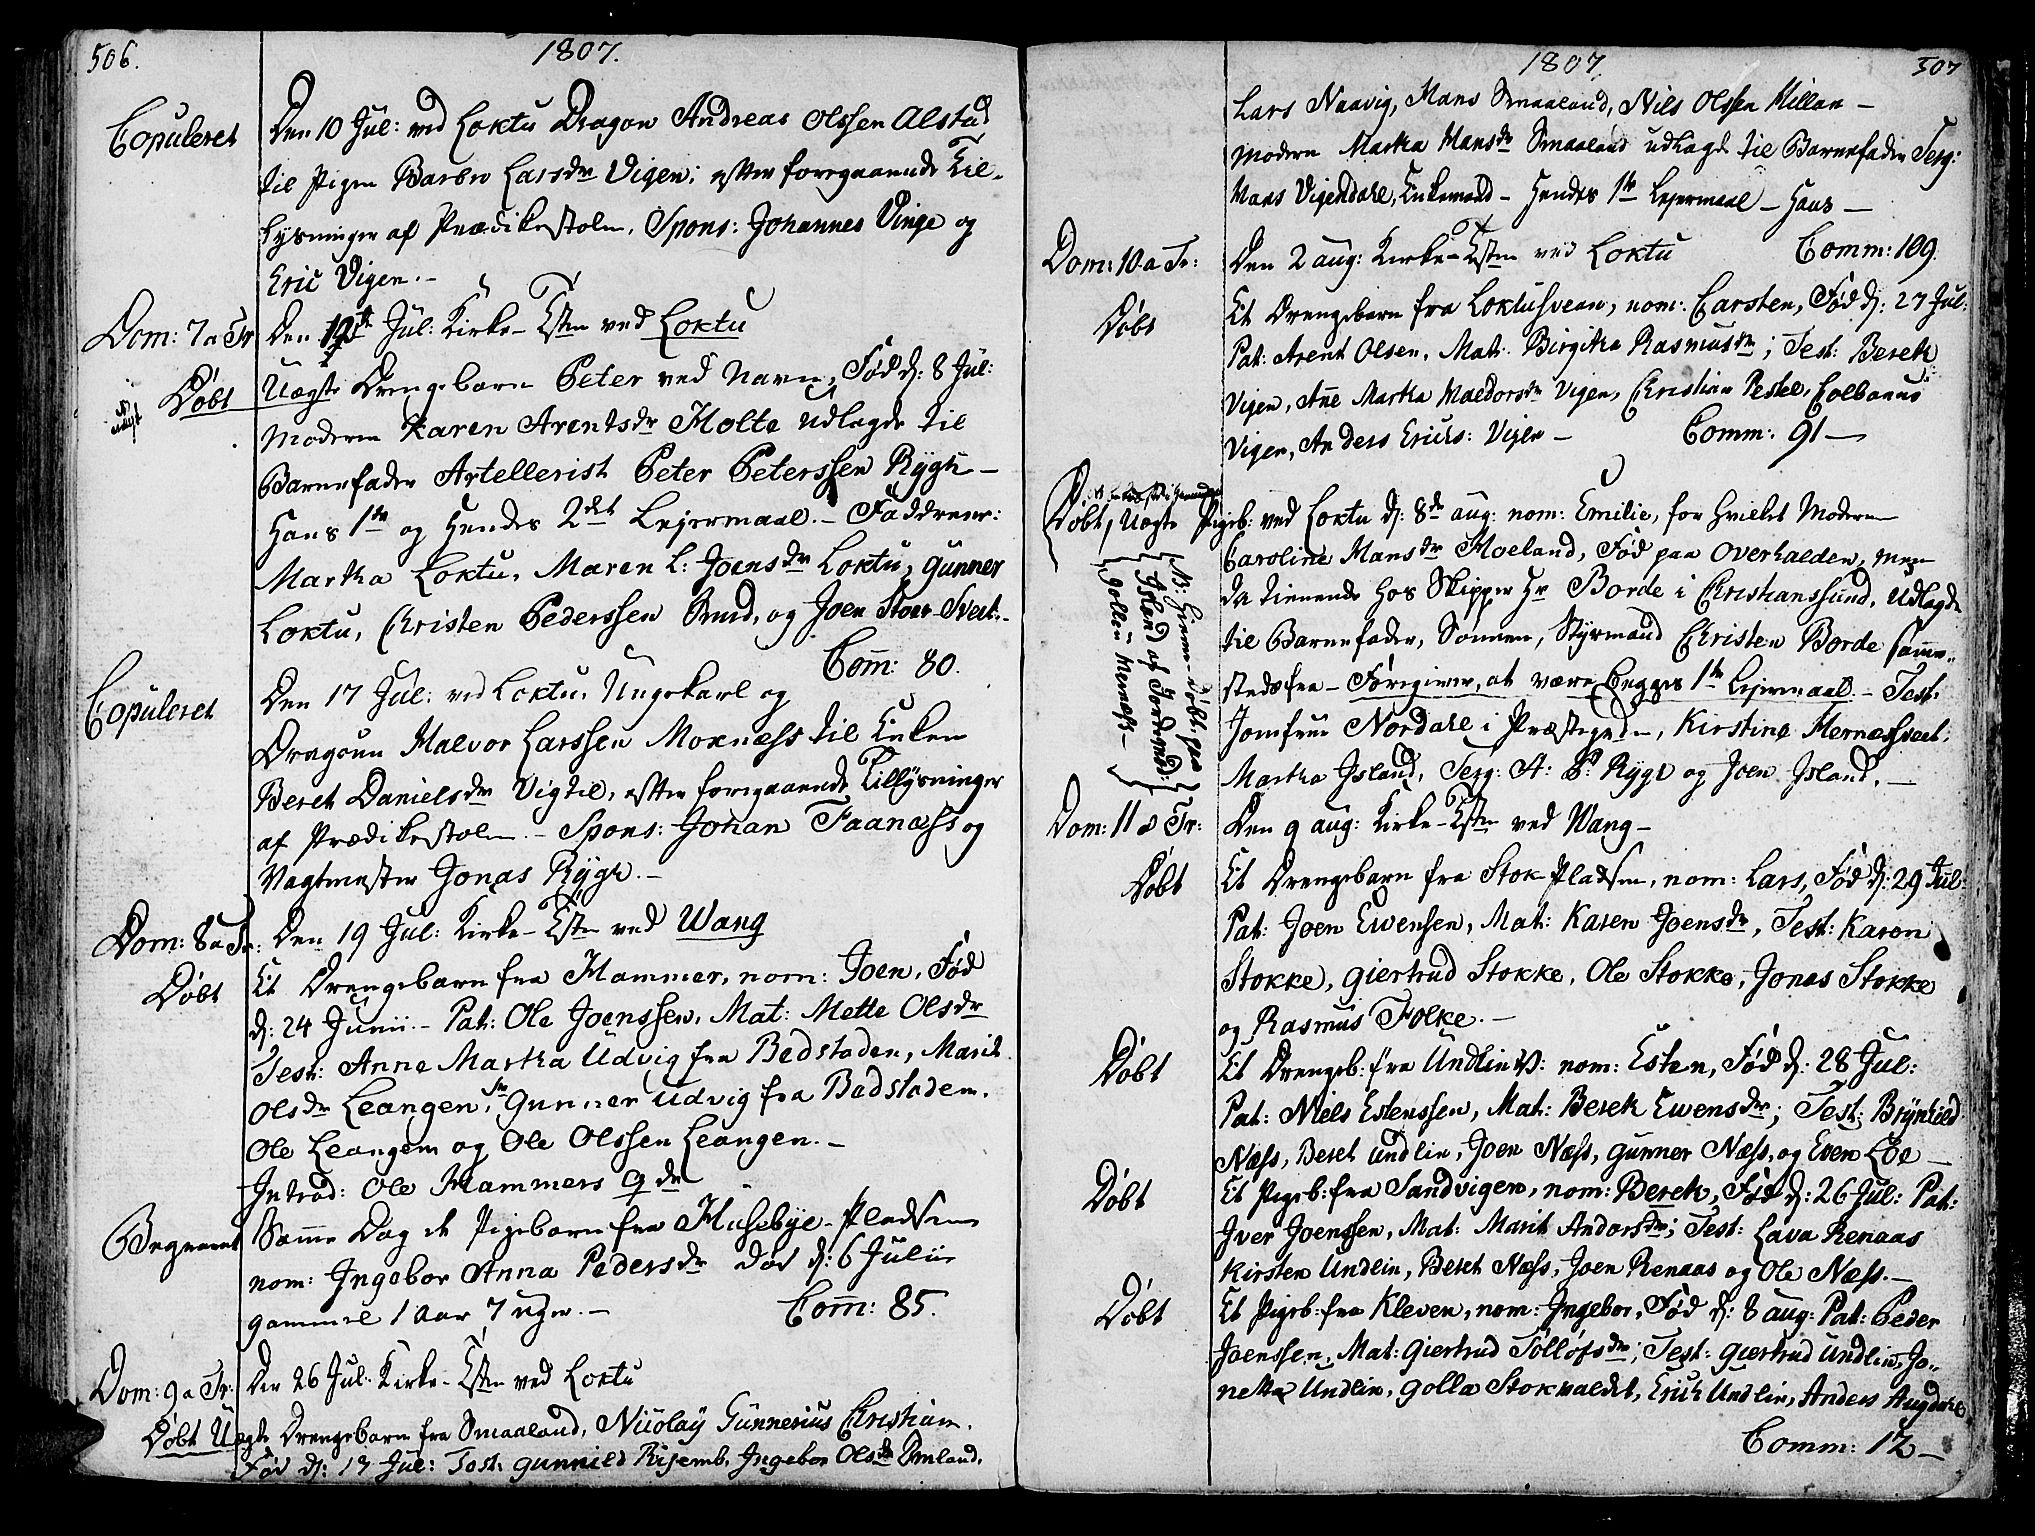 506.
1807.
Copuleret
Den 10 Jul: ved Loktu Dragon Andreas Olssen Alstad
til Pigen Barbro Larsdr Vigen; efter foregaaende Til-
lysninger af Prædikestolen, Spons: Johannes Vinge og
Eric Vigen. -
Dom: 7 a Tr
Den 12te Jul: Kirke-Tsten ved Loktu
Døbt
Uægte Drengebarn Peter ved Navn, Fød d: 8 Jul:
Moderen Karen Arentsdr Holte udlagde til
Barnefader Artellerist Peter Peterssen Rygh -
Hans 1te og Hendes 2det Lejermaal. - Faddrene:
Martha Loktu, Maren L: Joensdr Loktu, Gunner
Loktu, Christen Pederssen, og Joen Stoer-Svet:
Com̄: 80.
Copuleret
Den 17 Jul: ved Loktu, Ungekarl og
Dragoun Halvor Larssen Moxnæss til Enken
Beret Danielsdr Vigtil, efter foregaaende Tillysninger
af Prædikestolen - Spons: Johan Faanæss og
Vagtmester Jonas Rygh. -
Dom: 8 a Tr:
Den 19 Jul: Kirke-Tsten ved Wang
Døbt
Et Drengebarn fra Hammer, nom: Joen, Fød
d: 24 Junii. - Pat: Ole Joenssen, Mat: Mette Olsdr
Test: Anne Martha Udvig fra Badstaden, Marit
Olsdr Leangen, Gunner Udvig fra Badstaden,
Ole Leangen og Ole Olssen Leangen. -
Introd: Ole Hammers Qde
Begravet
Samme Dag et Pigebarn fra Husebye-Pladsen
nom: Ingebor Anna Pedersdr død d: 6 Julii
gammel 1 Aar 7 uger. - Com̄: 85.
Dom: 9 a Tr:
Den 26 Jul: Kirke-Tsten ved Loktu
Døbt
Uægte Drengebarn fra Smaaland, Nicolaÿ Gunnerius Christian,
Fød d: 13 Jul: Test: Gunnild Risemb, Ingebor Olsdr Smland,
1807
507
Lars Naavig, Hans Smaaland, Nils Olssen Hillan -
Moderen Martha Hansdr Smaaland udlagde til Barnefader Serg:
Hans Vigendahl, Enkemand - Hendes 1te Lejermaal - Hans -
Dom: 10 a Tr:
Den 2 Aug: Kirke-Tsten ved Loktu Comm: 109.
Døbt
Et Drengebarn fra Loktusveen, nom: Carsten, Fød d: 27 Jul:
Pat: Arent Olsen, Mat: Birgitha Rasmusdr; Test: Bereth
Vigen, Ane Martha Haldorsdr Vigen, Christian Pestel, Colbanus
Vigen, Anders Erichs: Vigen - Comm: 91 -
Døbt, Uægte Pigeb: ved Loktu d: 8de Aug: nom: Emilie, for hvilket Moderen
Caroline Hansdr Moeland, Fød paa Overhalden, men
da tienende hos Skipper Hr Borde i Christianssund, udlagde
til Barnefader, Sønnen, Styrmand Christen Borde samme-
stedsfra - Foregiver, at være Begges 1te Lejermaal - Test:
Jomfrue Nordahl i Præstegrden, Kirstine Hernæsvet:
Martha Island, Serg: A: P: Rygh og Joen Island. -
NB: Hjemme-døbt paa
Island af Jordemod:
Gollin Hernæss -
Dom: 11 a Tr:
Den 9 Aug: Kirke-Tsten ved Wang -
Døbt
Et Drengebarn fra Stok-Pladsen, nom: Lars, Fød d: 29 Jul:
Pat: Joen Ewensen, Mat: Karen Joensdr, Test: Karen
Stokke, Giertrud Stokke, Ole Stokke, Jonas Stokke
og Rasmus Folke. -
Døbt
Et Drengeb: fra Undlin: nom: Esten, Fød d: 28 Jul:
Pat: Niels Estenssen, Mat: Bereth Ewensdr; Test: Brÿnhild
Næss, Beret Undlin, Joen Næss, Gunner Næss, og Even Loe -
Døbt
Et Pigeb: fra Sandvigen, nom: Bereth, Fød d: 26 Jul: Pat:
Iver Joenssen, Mat: Marit Andorsdr; Test: Lava Renaas
Kirsten Undlin, Beret Næss, Joen Renaas og Ole Næss. -
Døbt
Et Pigeb: fra Kleven, nom: Ingebor, Fød d: 8 Aug: Pat: Peder
Joenssen, Mat: Giertrud Tølløfsdr; Test: Giertrud Undlin, Jo-
netta Undlin, Golla Stokvaldet, Erich Undlin, Anders Augdahl
Comm: 12 -